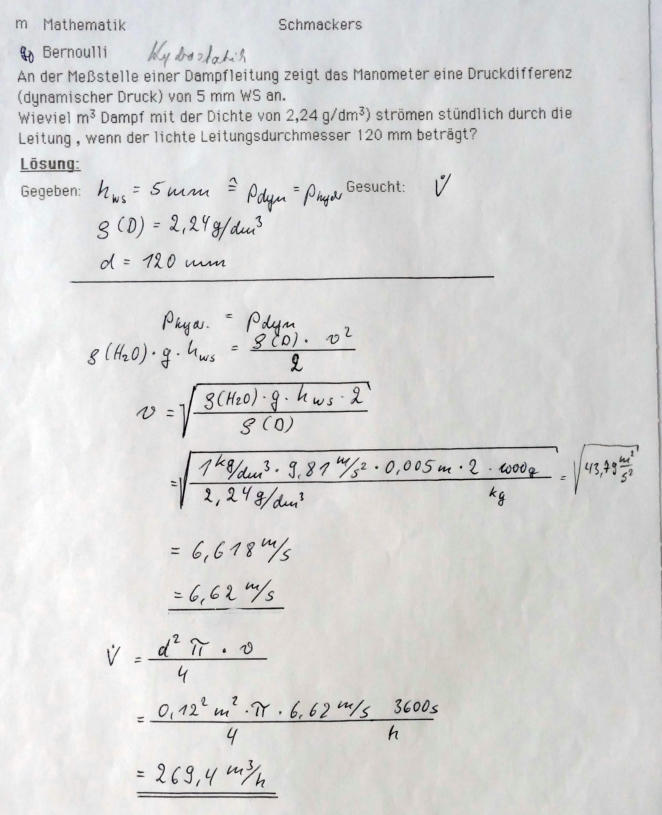 m Mathematik Schmackers
Bernoulli Hydrostatik
An der Meßstelle einer Dampfleitung zeigt das Manometer eine Druckdifferenz
(dynamischer Druck) von 5 mm WS an.
Wieviel m³ Dampf mit der Dichte von 2,24 g/dm³) strömen stündlich durch die
Leitung , wenn der lichte Leitungsdurchmesser 120 mm beträgt?
Lösung:
Gegeben: h_ws = 5 mm ≙ p_dyn = p_hydr Gesucht: V̇
ϱ(D) = 2,24 g/dm³
d = 120 mm
p_hydr. = p_dyn
ϱ(H₂O) · g · h_ws = ϱ(D) · v² / 2
v = √(ϱ(H₂O) · g · h_ws · 2 / ϱ(D))
= √(1 kg/dm³ · 9,81 m/s² · 0,005 m · 2 · 1000g / 2,24 g/dm³ kg) = √(43,79 m²/s²)
= 6,618 m/s
= 6,62 m/s
V̇ = d² π · v / 4
= 0,12² m² · π · 6,62 m/s 3600s / 4 h
= 269,4 m³/h